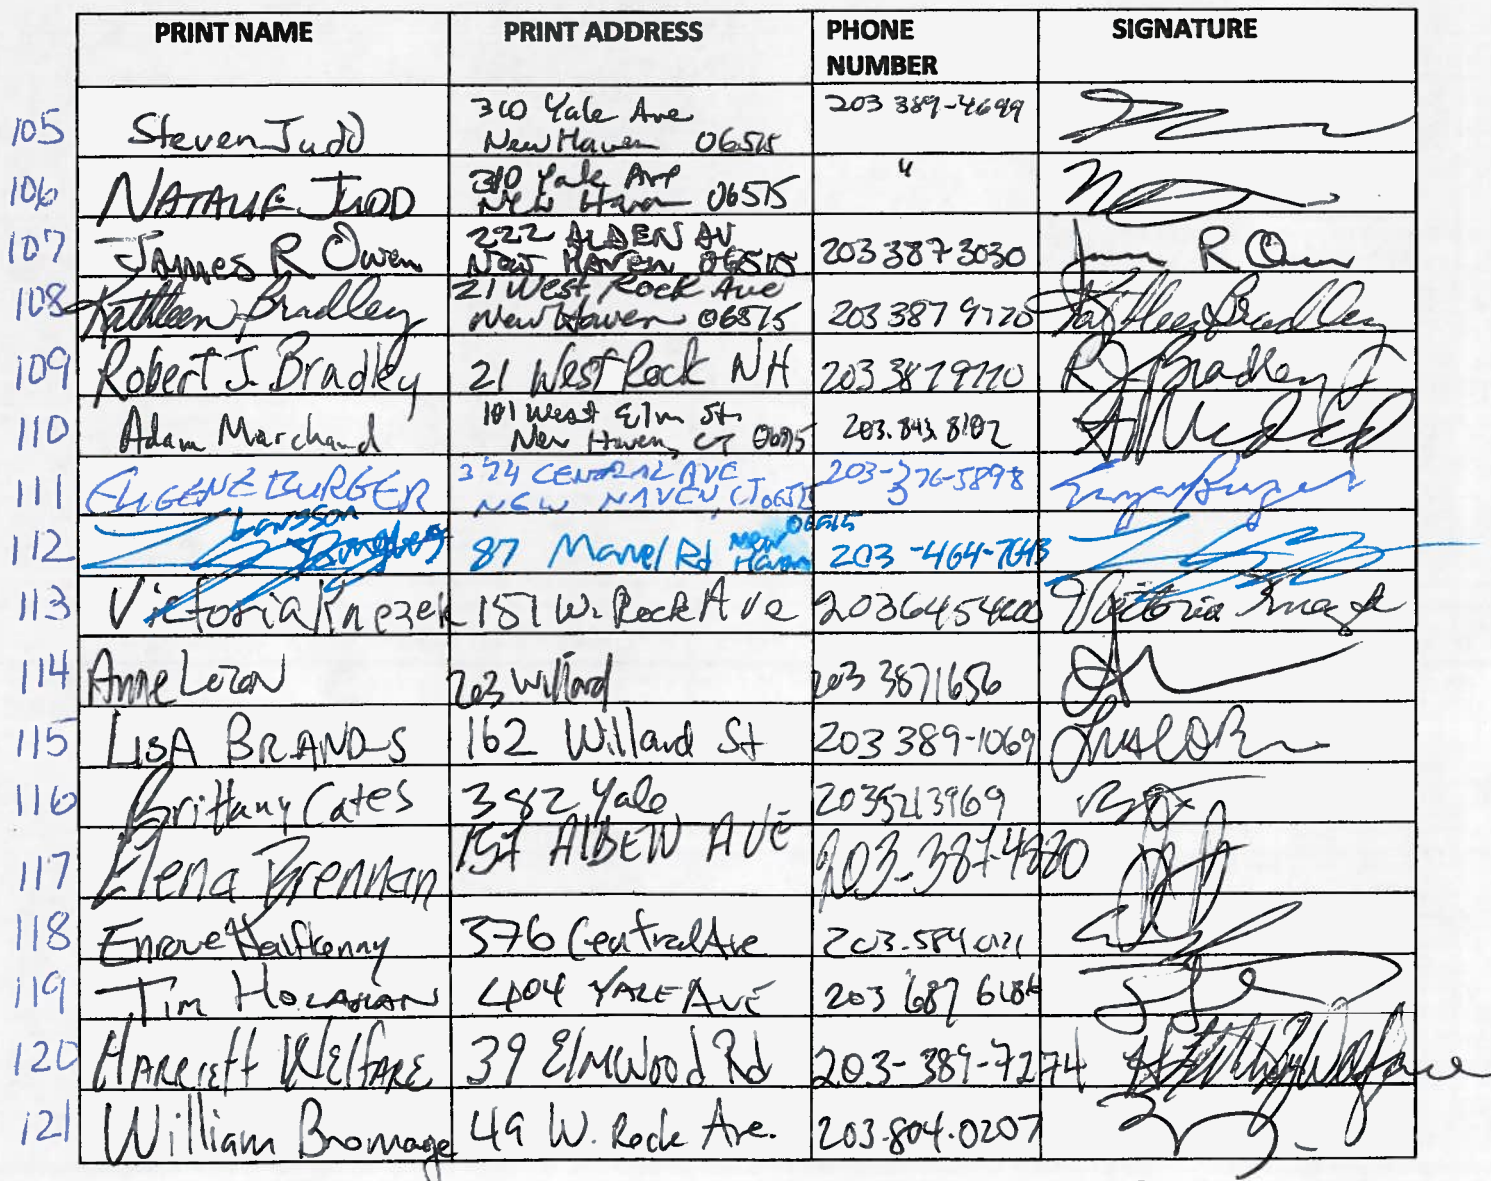 PRINT NAME PRINT ADDRESS PHONE NUMBER SIGNATURE
105 Steven Judd 310 Yale Ave New Haven 06515 203 389-4699
106 NATALIE JUDD 310 Yale Ave New Haven 06515 "
107 James R Owen 222 ALDEN AV NEW HAVEN 06515 203 387 3030 James R Owen
108 Kathleen Bradley 21 West Rock Ave New Haven 06515 203 387 9770 Kathleen Bradley
109 Robert J. Bradley 21 West Rock NH 203 387 9770 R J Bradley Jr
110 Adam Marchand 181 West Elm St. New Haven, CT 06515 203.843.8102
111 EUGENE BURGER 374 CENTRAL AVE NEW HAVEN, CT 06515 203-376-5898 Eugene Burger
112 Larsson 87 Marvel Rd New Haven 06515 203-464-7643
113 Victoria Knezek 151 W. Rock Ave 203645 Victoria
114 Anne Lozon 203 Willard 203 3871656
115 LISA BRANDS 162 Willard St 203 389-1069
116 Brittany Cates 382 Yale 2035213969
117 Elena Brennan 157 ALDEN AVE 203-387-4880
118 Enroue Halfkenny 376 Central Ave 203.584.0121
119 TIM HOLAHAN 404 YALE AVE 203 687 6184
120 HARRIETT WELFARE 39 ElmWood Rd 203-389-7274
121 William Bromage 49 W. Rock Ave. 203.804.0207